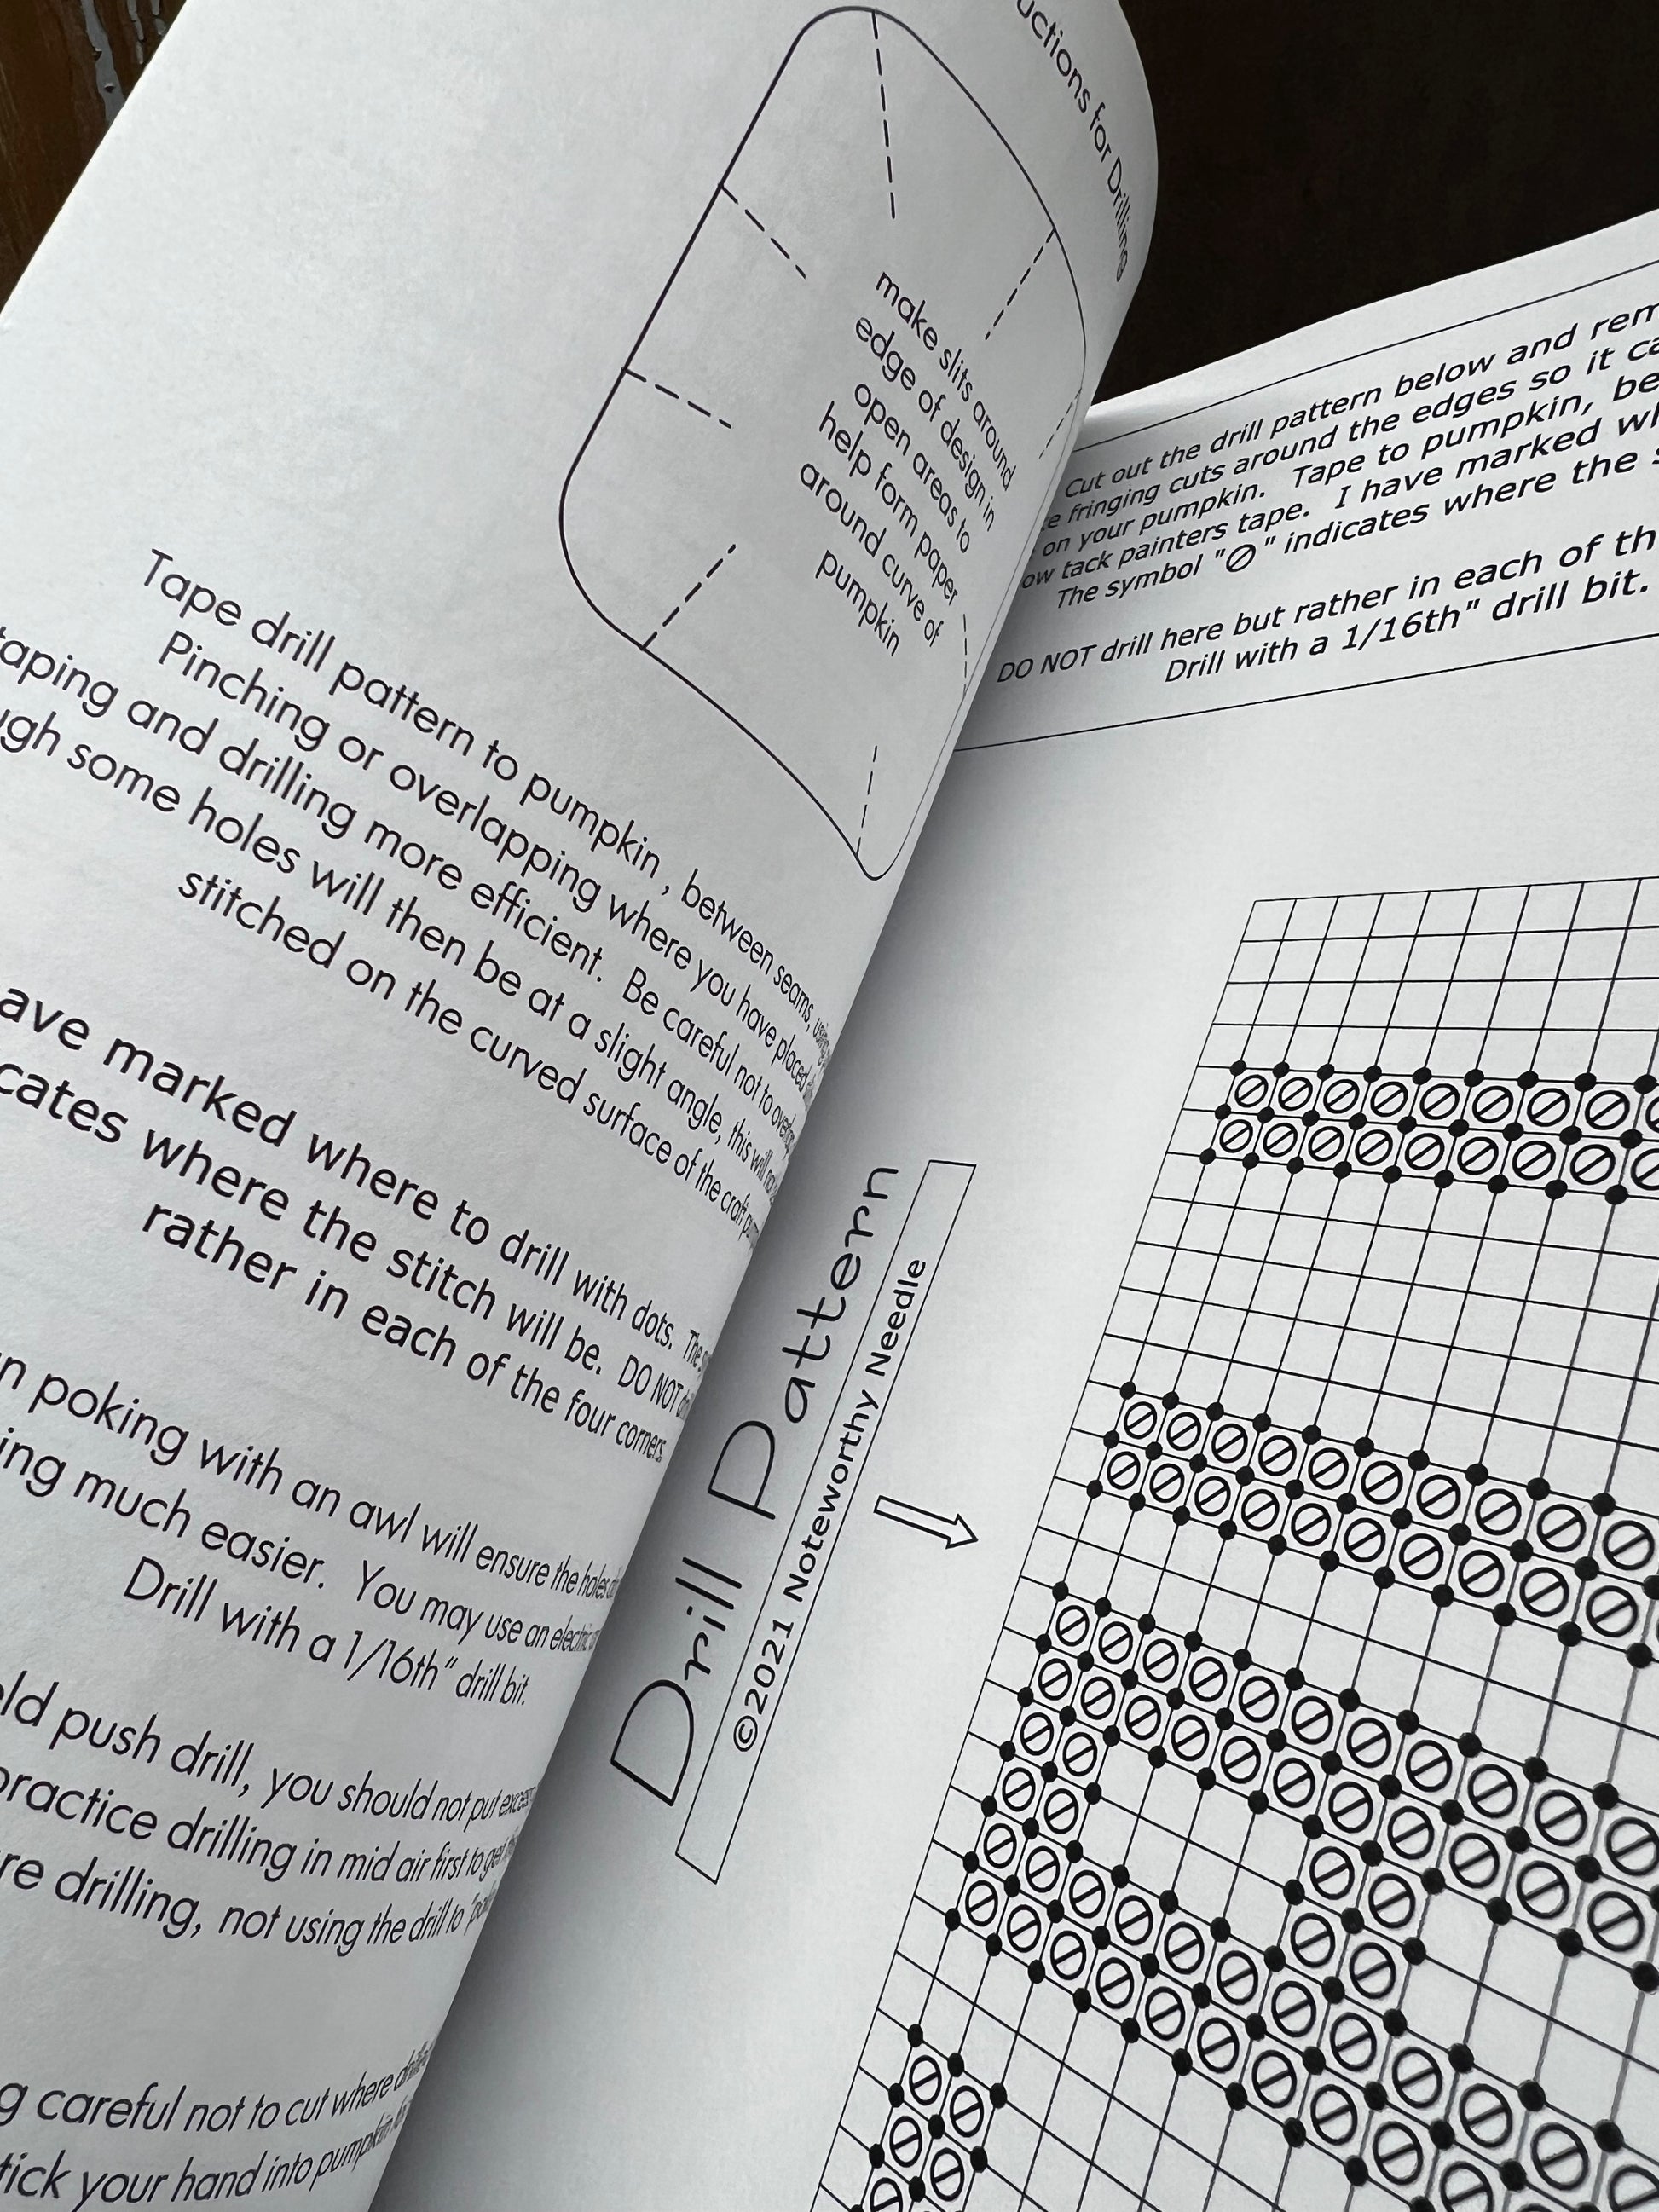 uctions for Drilling
make slits around
edge of design in
open areas to
help form paper
around curve of
pumpkin
Tape drill pattern to pumpkin, between seams,
Pinching or overlapping where you have placed
taping and drilling more efficient. Be careful not to
ugh some holes will then be at a slight angle, this will
stitched on the curved surface of the craft
ave marked where to drill with dots. The
cates where the stitch will be. DO NOT
rather in each of the four corners.
n poking with an awl will ensure the holes
ing much easier. You may use an electric
Drill with a 1/16th" drill bit.
ld push drill, you should not put
practice drilling in mid air first to get
re drilling, not using the drill to
g careful not to cut where
tick your hand into pumpkin
Cut out the drill pattern below and rem
e fringing cuts around the edges so it ca
on your pumpkin. Tape to pumpkin, be
ow tack painters tape. I have marked wh
The symbol "⊘" indicates where the s
DO NOT drill here but rather in each of th
Drill with a 1/16th" drill bit.
Drill Pattern
©2021 Noteworthy Needle